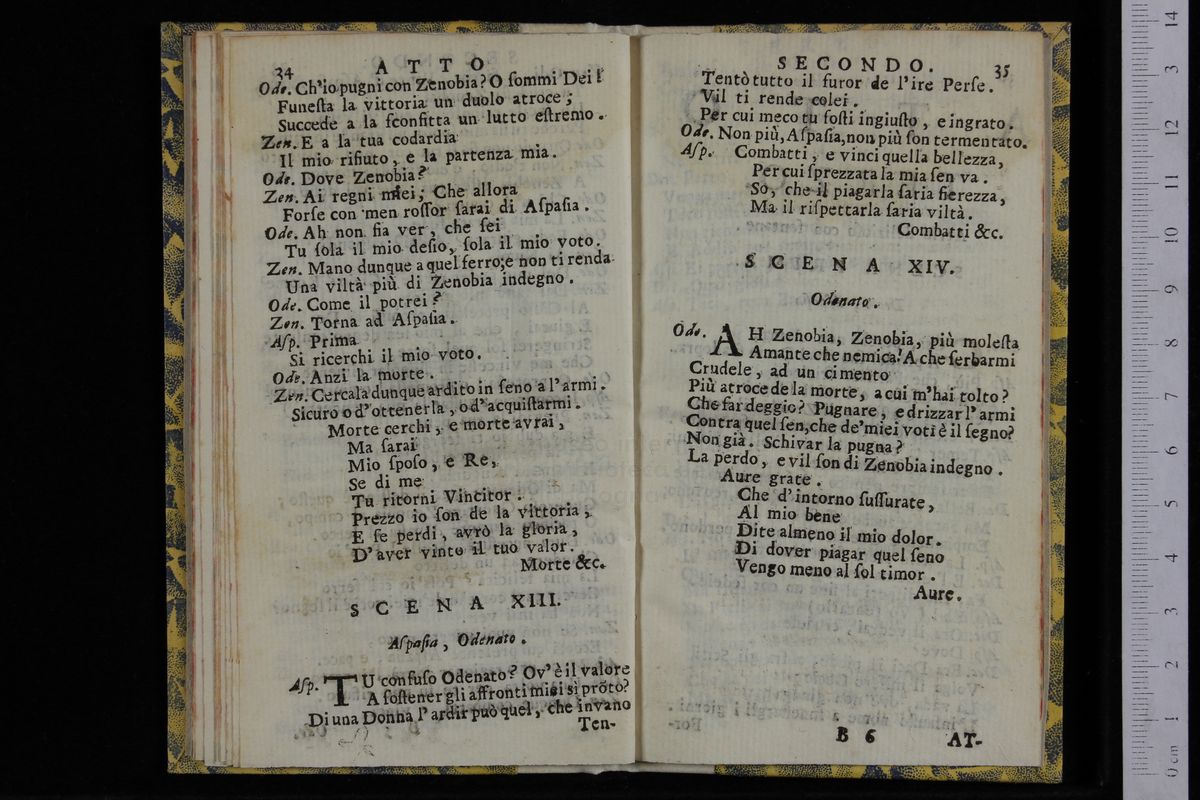 34 ATTO
Ode. Ch'io pugni con Zenobia? O ſommi Dei!
Funeſta la vittoria un duolo atroce;
Succede a la ſconfitta un lutto eſtremo.
Zen. E a la tua codardia
Il mio rifiuto, e la partenza mia.
Ode. Dove Zenobia?
Zen. Ai regni miei; Che allora
Forſe con men roſſor ſarai di Aſpaſia.
Ode. Ah non ſia ver, che ſei
Tu ſola il mio deſio, ſola il mio voto.
Zen. Mano dunque a quel ferro; e non ti renda
Una viltà più di Zenobia indegno.
Ode. Come il potrei?
Zen. Torna ad Aſpaſia.
Aſp. Prima
Si ricerchi il mio voto.
Ode. Anzi la morte.
Zen. Cercala dunque ardito in ſeno a l'armi.
Sicuro o d'ottenerla, o d'acquiſtarmi.
Morte cerchi, e morte avrai,
Ma ſarai
Mio ſpoſo, e Re,
Se di me
Tu ritorni Vincitor.
Prezzo io ſon de la vittoria,
E ſe perdi, avrò la gloria,
D'aver vinto il tuo valor.
Morte &c.
SCENA XIII.
Aſpaſia, Odenato.
Aſp. TU confuſo Odenato? Ov'è il valore
A ſoſtener gli affronti miei sì prōto?
Di una Donna l'ardir può quel, che invano
Ten-
SECONDO. 35
Tentò tutto il furor de l'ire Perſe.
Vil ti rende colei.
Per cui meco tu foſti ingiuſto, e ingrato.
Ode. Non più, Aſpaſia, non più ſon termentato.
Aſp. Combatti, e vinci quella bellezza,
Per cui ſprezzata la mia ſen va.
So, che il piagarla ſaria fierezza,
Ma il riſpettarla ſaria viltà.
Combatti &c.
SCENA XIV.
Odenato.
Ode. AH Zenobia, Zenobia, più moleſta
Amante che nemica! A che ſerbarmi
Crudele, ad un cimento
Più atroce de la morte, a cui m'hai tolto?
Che far deggio? Pugnare, e drizzar l'armi
Contra quel ſen, che de'miei voti è il ſegno?
Non già. Schivar la pugna?
La perdo, e vil ſon di Zenobia indegno.
Aure grate.
Che d'intorno ſuſſurate,
Al mio bene
Dite almeno il mio dolor.
Di dover piagar quel ſeno
Vengo meno al ſol timor.
Aure.
B 6 AT-